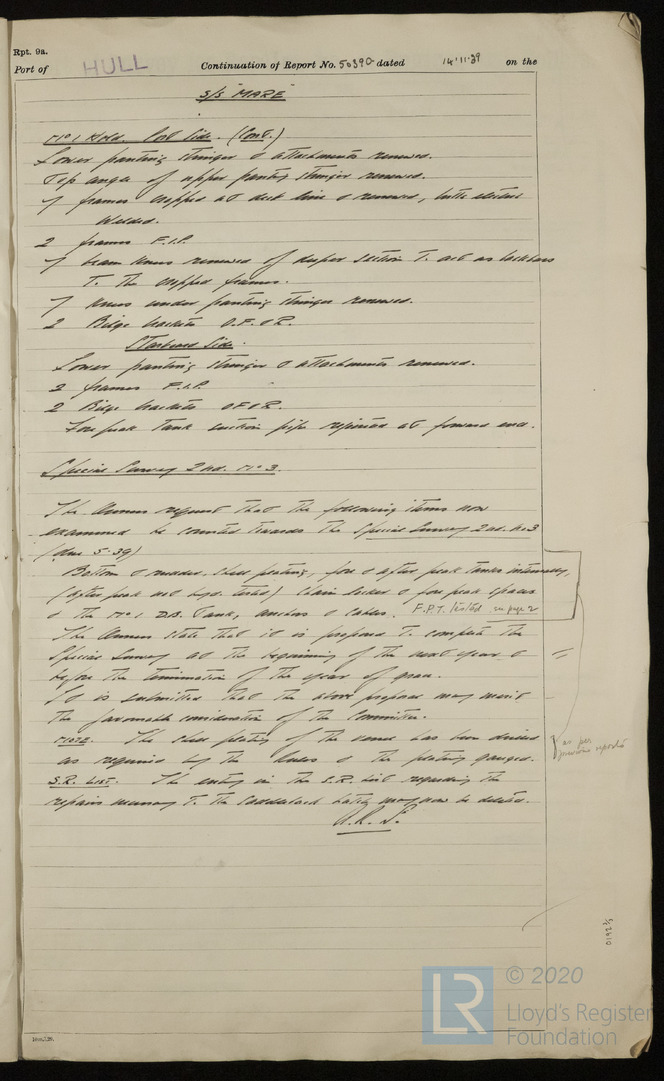 Rpt. 9a.
Port of HULL Continuation of Report No. 50390 dated 14.11.39 on the
S/S "MARE"
No 1 Hold. Port Side. (Cont.)
Lower panting stringer & attachments renewed.
Top angle of upper panting stringer renewed.
7 frames cropped at deck line & renewed, butts electric
Welded.
2 frames F.I.P.
7 beam knees renewed of deeper section T. act as backbars
T. the cropped frames.
7 knees under panting stringer renewed.
2 Bilge brackets O.F. & R.
Starboard Side.
Lower panting stringer & attachments renewed.
2 frames F.I.P.
2 Bilge brackets OF&R.
Fore peak Tank suction pipe rejointed at forward end.
Special Survey 2nd. No 3.
The Owners request that the following items now
examined be counted towards the Special Survey 2nd. No 3
(due 5.39)
Bottom & rudder, shell plating, fore & after peak tanks internally,
(after peak not hyd. tested) chain locker & fore peak spaces
& the No 1 D.B. Tank, anchors & cables. F.P.T. tested see page 2
The Owners state that it is proposed T. complete the
Special Survey at the beginning of the next year &
before the termination of the year of grace.
It is submitted that the above proposal may merit
the favourable consideration of the Committee.
The shell plating of the vessel has been drilled
as required by the Rules & the plating gauged.
S.R. LIST. The entry in the S.R. List regarding the
repairs necessary T. the saddleback hatch may now be deleted.
as per
previous reports
© 2020
LR
Lloyd's Register
Foundation